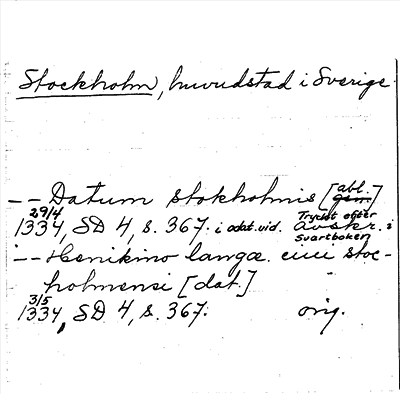 Stockholm, huvudstad i Sverige.
-- Datum stokholmis [abl.]
29/4 Tryckt efter
1334, SD 4, s. 367. i odat. vid. Avskr. i
Svartboken
-- Henikino langæ ciui stoc-
holmensi [dat.]
3/5
1334, SD 4, s. 367. orig.